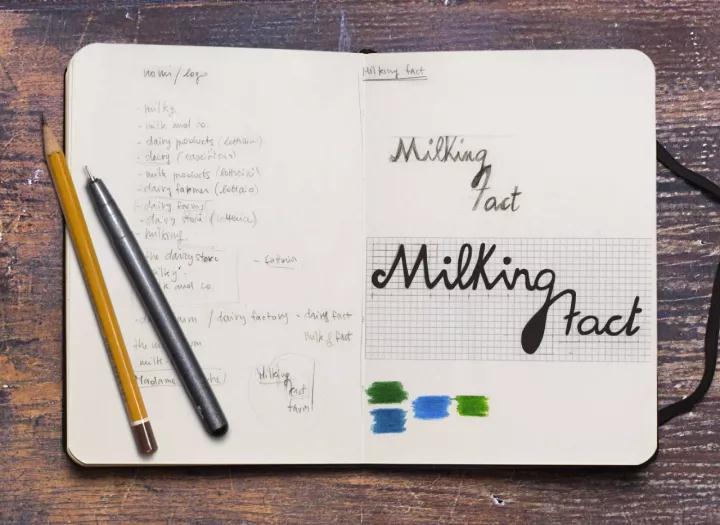 nomi/logo
- milky
- milk and co.
- dairy products (latticini)
- dairy (caseificio)
- milk products (latticini)
- dairy farmer (lattaio)
- dairy farms
- dairy store (latteria)
- milking
the dairy store
milky
and co.
- fattoria
/ dairy factory - dairy fact
milk & fact
the
milk
Madame
Milking
fact
farm
Milking fact
Milking
fact
Milking
fact